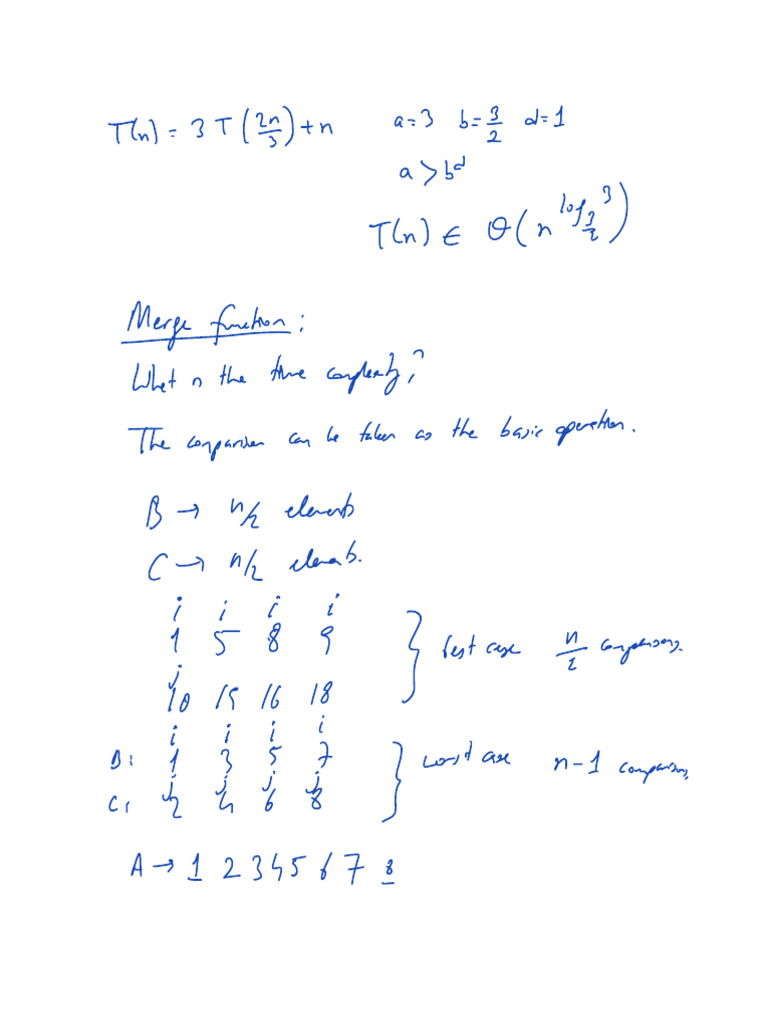 T(n) = 3T(2n/3) + n   a=3   b=3/2   d=1
a > b^d
T(n) ∈ Θ(n^log_{3/2} 3)
Merge function:
What is the time complexity?
The comparison can be taken as the basic operation.
B → n/2 elements
C → n/2 elements.
i i i i
1 5 8 9
best case n/2 comparisons.
j
10 15 16 18
i i i i
B: 1 3 5 7
worst case n-1 comparisons,
j j j j
C: 2 4 6 8
A → 1 2 3 4 5 6 7 8